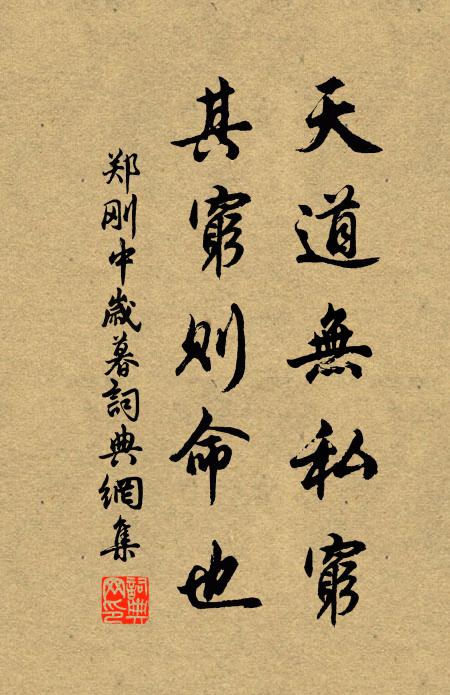 天道無私窮
其窮则命也
郑刚中歲暮詞典網集
詞典网印